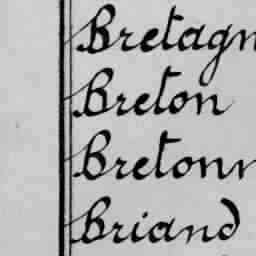 Bretagn
Breton
Bretonn
Briand